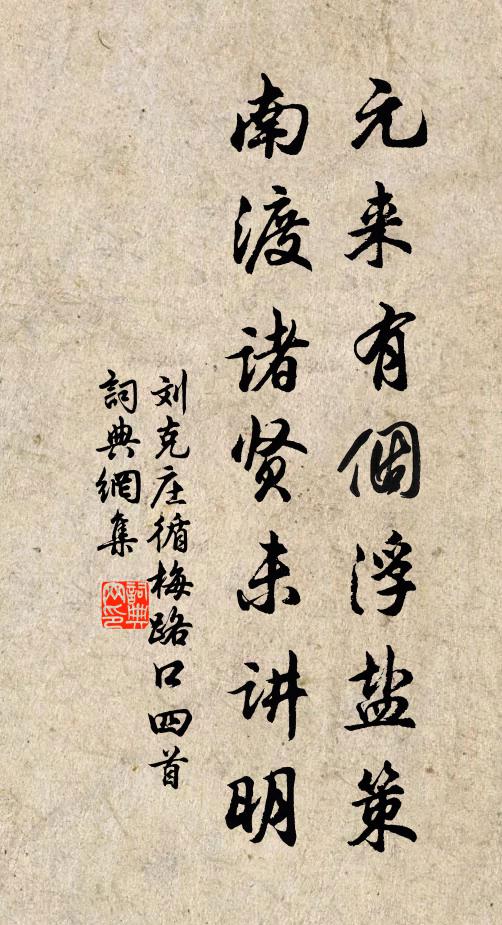 元来有個浮盐策
南渡诸贤未讲明
刘克庄循梅路口四首
詞典網集
詞典网印